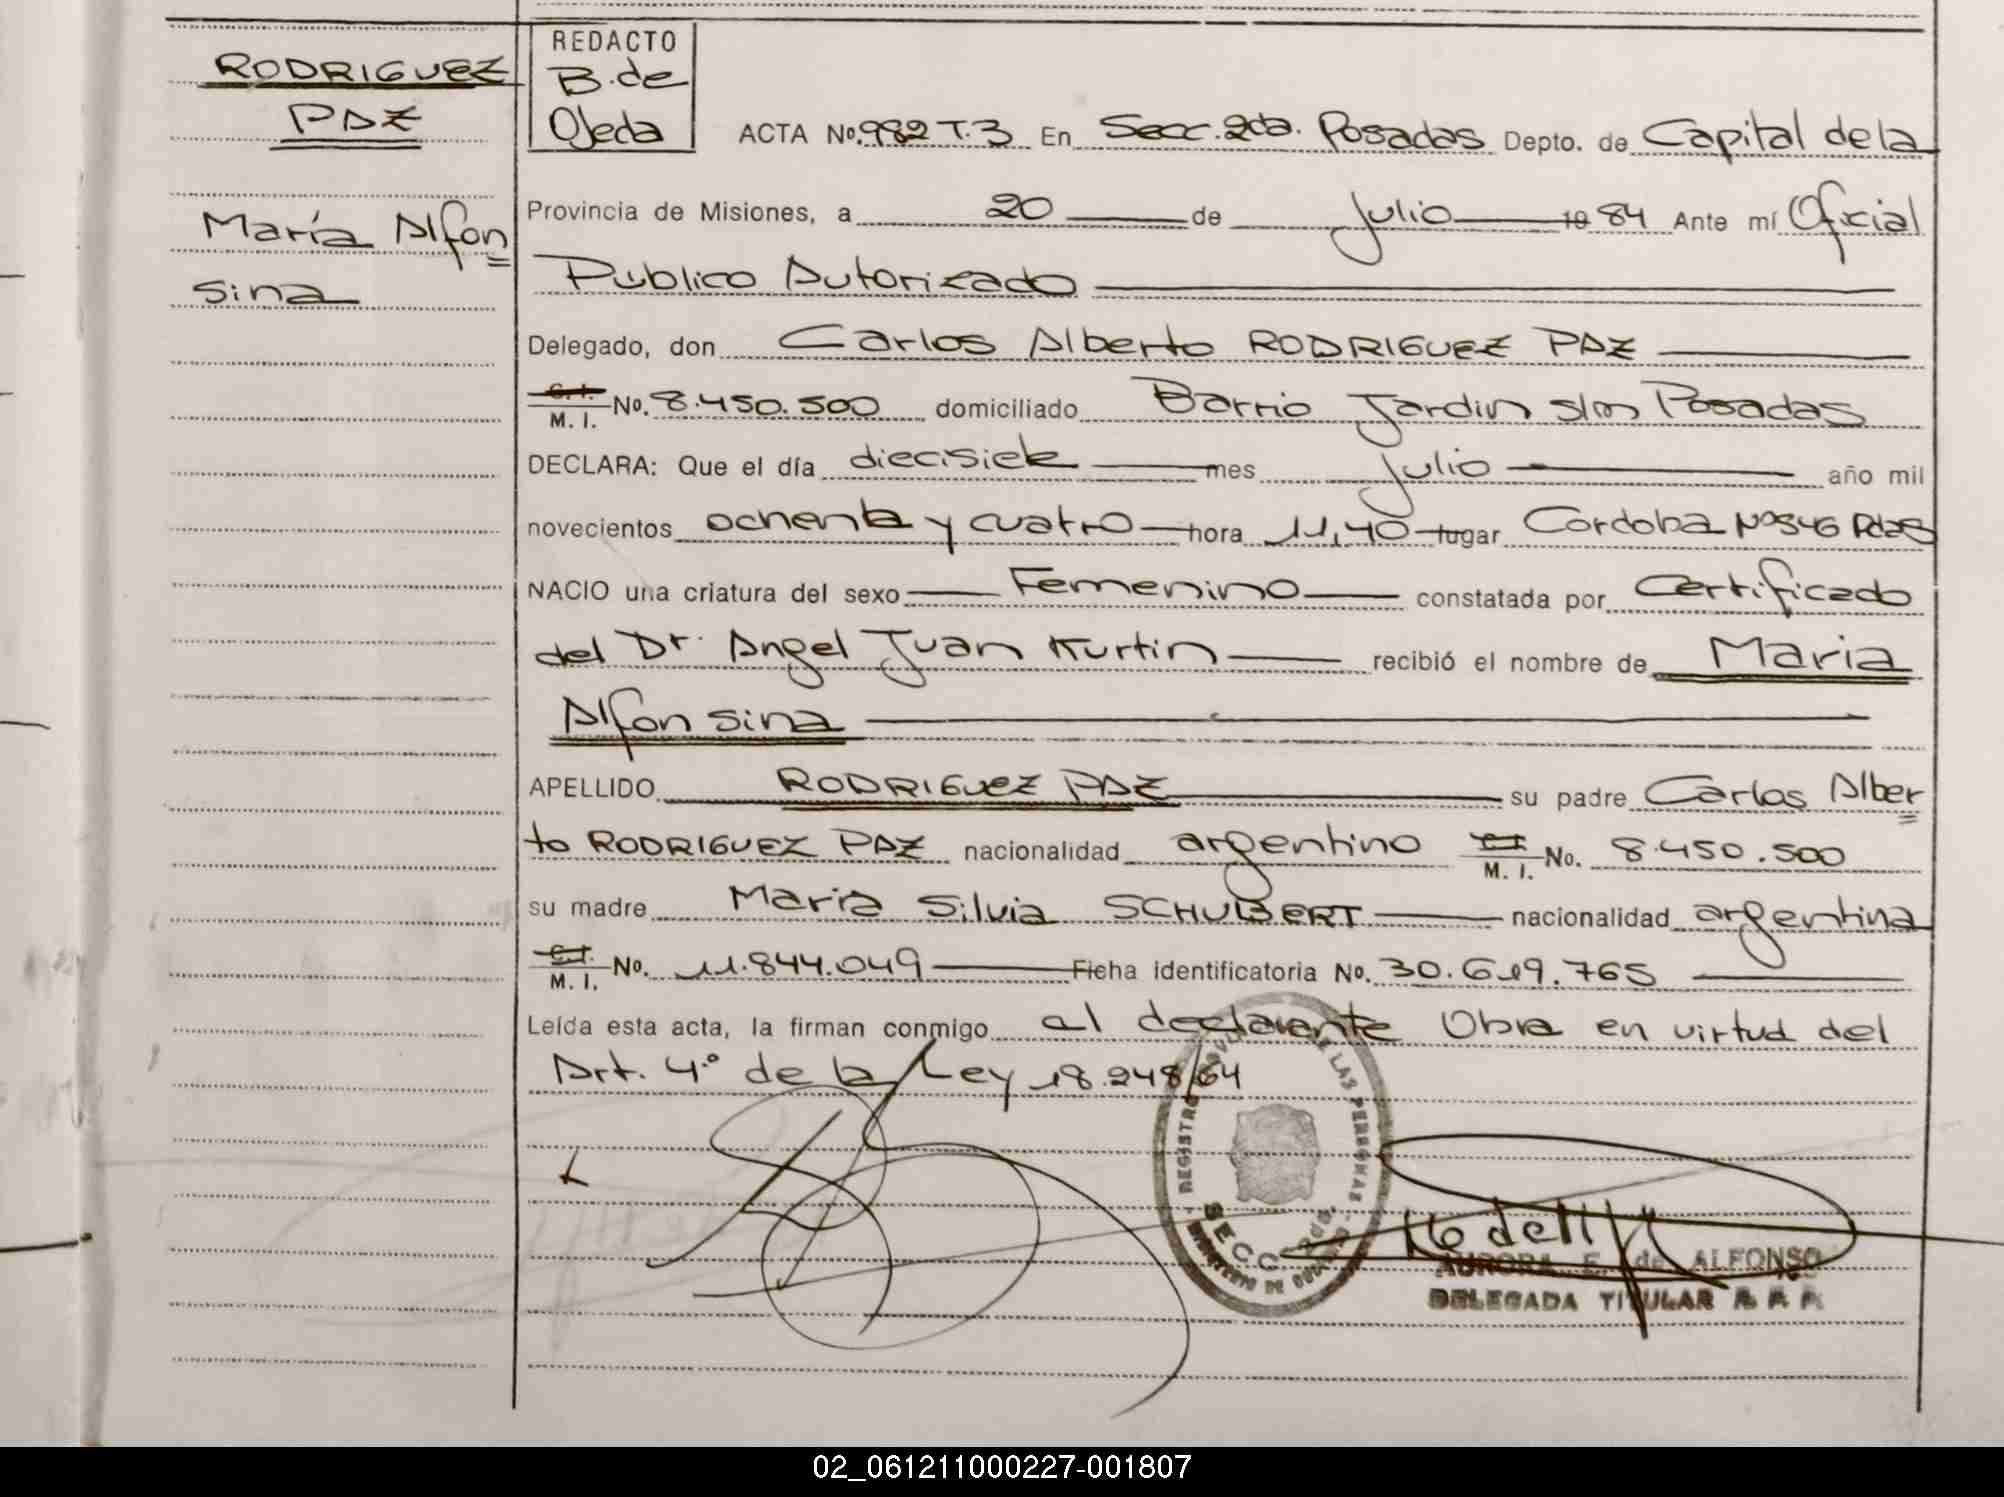 RODRIGUEZ
PAZ
María Alfon
sina
REDACTO
B. de
Ojeda
ACTA No. 982 T.3 En Secc. 2da. Posadas Depto. de Capital de la
Provincia de Misiones, a 20 de Julio 1984 Ante mí Oficial
Publico Autorizado
Delegado, don Carlos Alberto RODRIGUEZ PAZ
C. I. M. I. No. 8.450.500 domiciliado Barrio Jardin s/n Posadas
DECLARA: Que el día diecisiete mes Julio año mil
novecientos ochenta y cuatro hora 11,40 lugar Cordoba Nº 546 Pdas
NACIO una criatura del sexo Femenino constatada por Certificado
del Dr. Angel Juan Kurtin recibió el nombre de Maria
Alfonsina
APELLIDO RODRIGUEZ PAZ su padre Carlos Alber
to RODRIGUEZ PAZ nacionalidad argentino M. I. No. 8.450.500
su madre Maria Silvia SCHUBERT nacionalidad argentina
C. I. M. I. No. 11.844.049 Ficha identificatoria No. 30.619.765
Leída esta acta, la firman conmigo el declarante Obra en virtud del
Art. 4.º de la Ley 18.248/64
REGISTRO DE LAS PERSONAS
SECC. 2da.
AURORA E. de ALFONSO
DELEGADA TITULAR R. P. P.
02_061211000227-001807